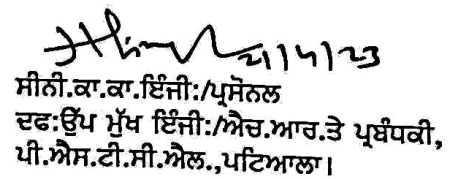 21/4/23
ਸੀਨੀ.ਕਾ.ਕਾ.ਇੰਜੀ:/ਪ੍ਰਸੋਨਲ
ਦਫ:ਉੱਪ ਮੁੱਖ ਇੰਜੀ:/ਐਚ.ਆਰ.ਤੇ ਪ੍ਰਬੰਧਕੀ,
ਪੀ.ਐਸ.ਟੀ.ਸੀ.ਐਲ.,ਪਟਿਆਲਾ।